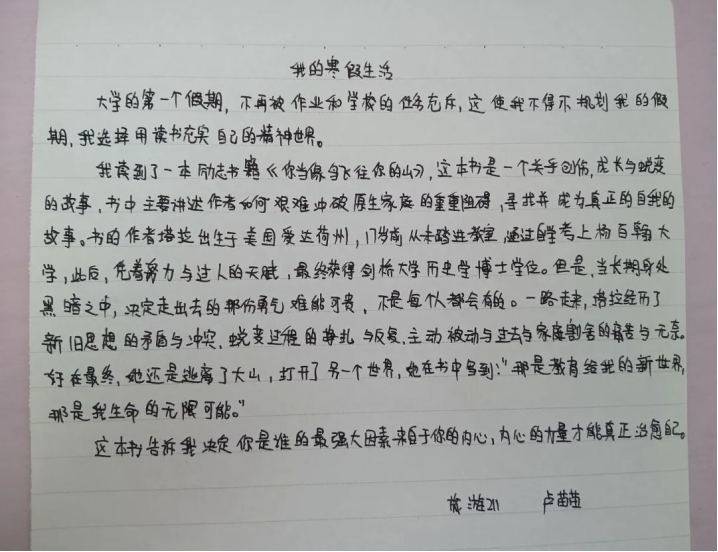 我的寒假生活
大学的第一个假期，不再被作业和学校的任务充斥，这使我不得不规划我的假
期，我选择用读书充实自己的精神世界。
我读到了一本励志书籍《你当像鸟飞往你的山》，这本书是一个关乎创伤，成长与蜕变
的故事，书中主要讲述作者如何艰难冲破原生家庭的重重阻碍，寻找并成为真正的自我的
故事。书的作者塔拉出生于美国爱达荷州，17岁前从未踏进教室，通过自学考上杨百翰大
学，此后，凭着努力与过人的天赋，最终获得剑桥大学历史学博士学位。但是，当长期身处
黑暗之中，决定走出去的那份勇气难能可贵，不是每个人都会有的。一路走来，塔拉经历了
新旧思想的矛盾与冲突，蜕变过程的挣扎与反复，主动被动与过去与家庭割舍的痛苦与无奈。
好在最终，她还是逃离了大山，打开了另一个世界，她在书中写到："那是教育给我的新世界，
那是我生命的无限可能。"
这本书告诉我决定你是谁的最强大因素来自于你的内心，内心的力量才能真正治愈自己。
旅游211 卢苗苗